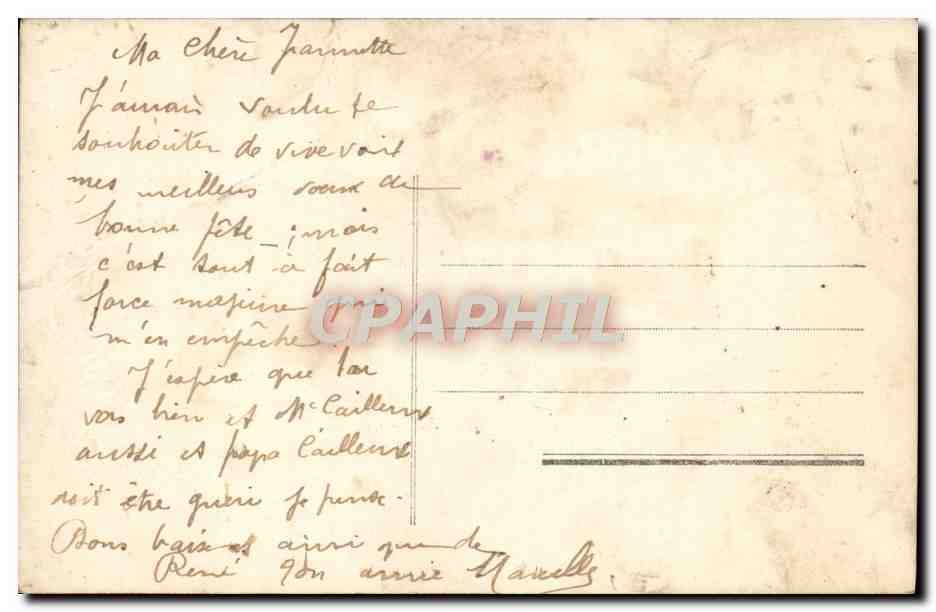 Ma Chère Jeannette
J'aurais voulu te
souhaiter de vive voix
mes meilleurs voeux de
bonne fête ; mais
c'est tout à fait
force majeure qui
m'en empêche.
J'espère que tu
vas bien et Me Cailleux
aussi et papa Cailleux
doit être guéri je pense.
Bons baisers ainsi que de
René Ton amie Marcelle.
CPAPHIL